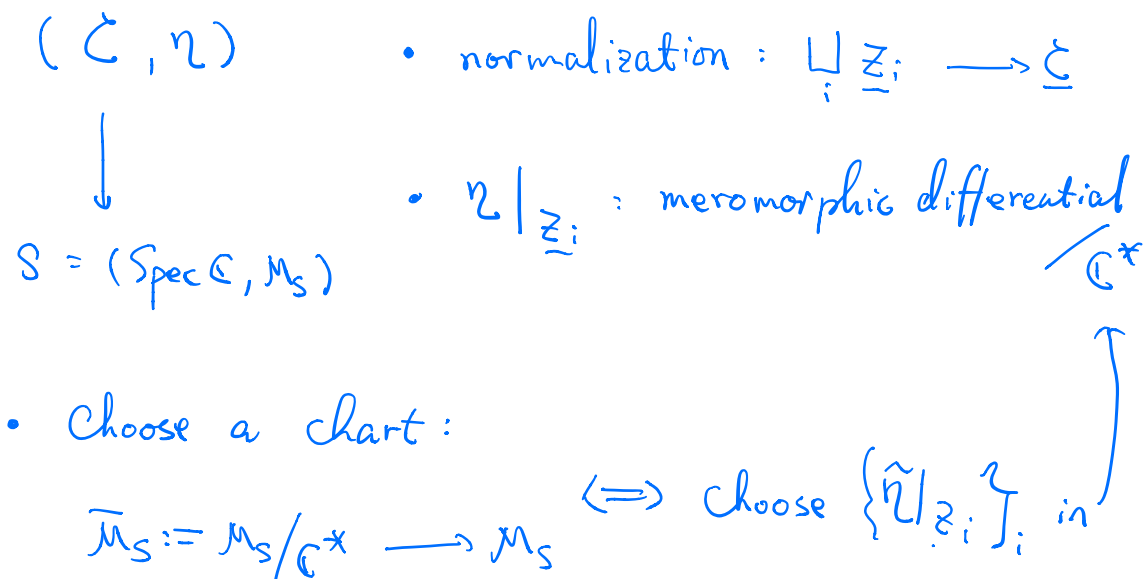 (C, η)
↓
S = (Spec ℂ, M_S)
• normalization : ⊔_i Z_i → C
• η|_{Z_i} : meromorphic differential
/ℂ*
• Choose a chart :
M̅_S := M_S/ℂ* → M_S
⟺ choose {η̃|_{Z_i}}_i in